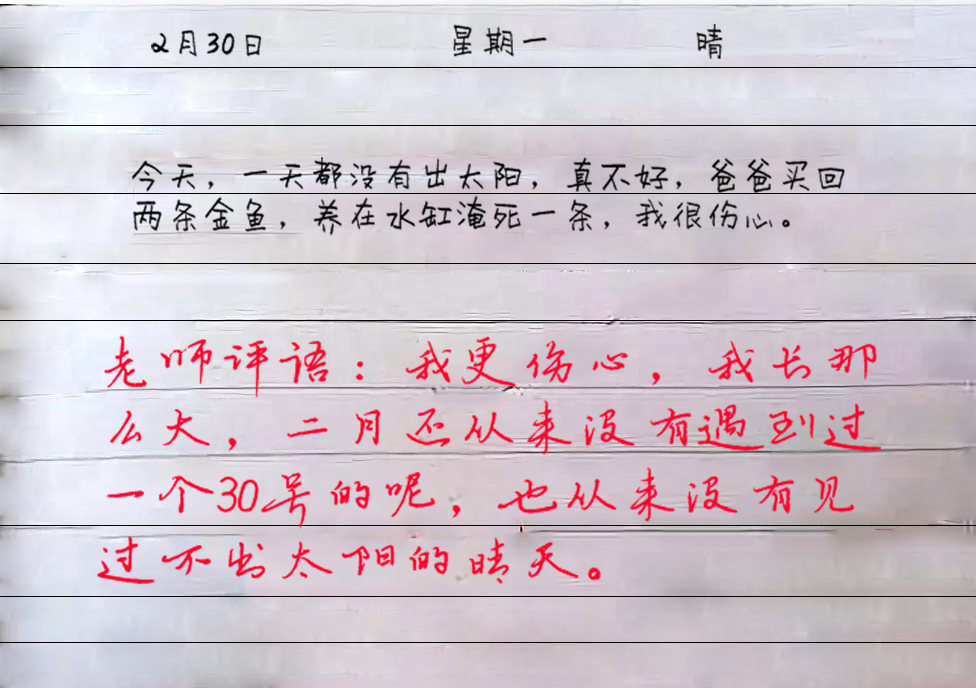 2月30日 星期一 晴
今天，一天都没有出太阳，真不好，爸爸买回
两条金鱼，养在水缸淹死一条，我很伤心。
老师评语：我更伤心，我长那
么大，二月还从来没有遇到过
一个30号的呢，也从来没有见
过不出太阳的晴天。